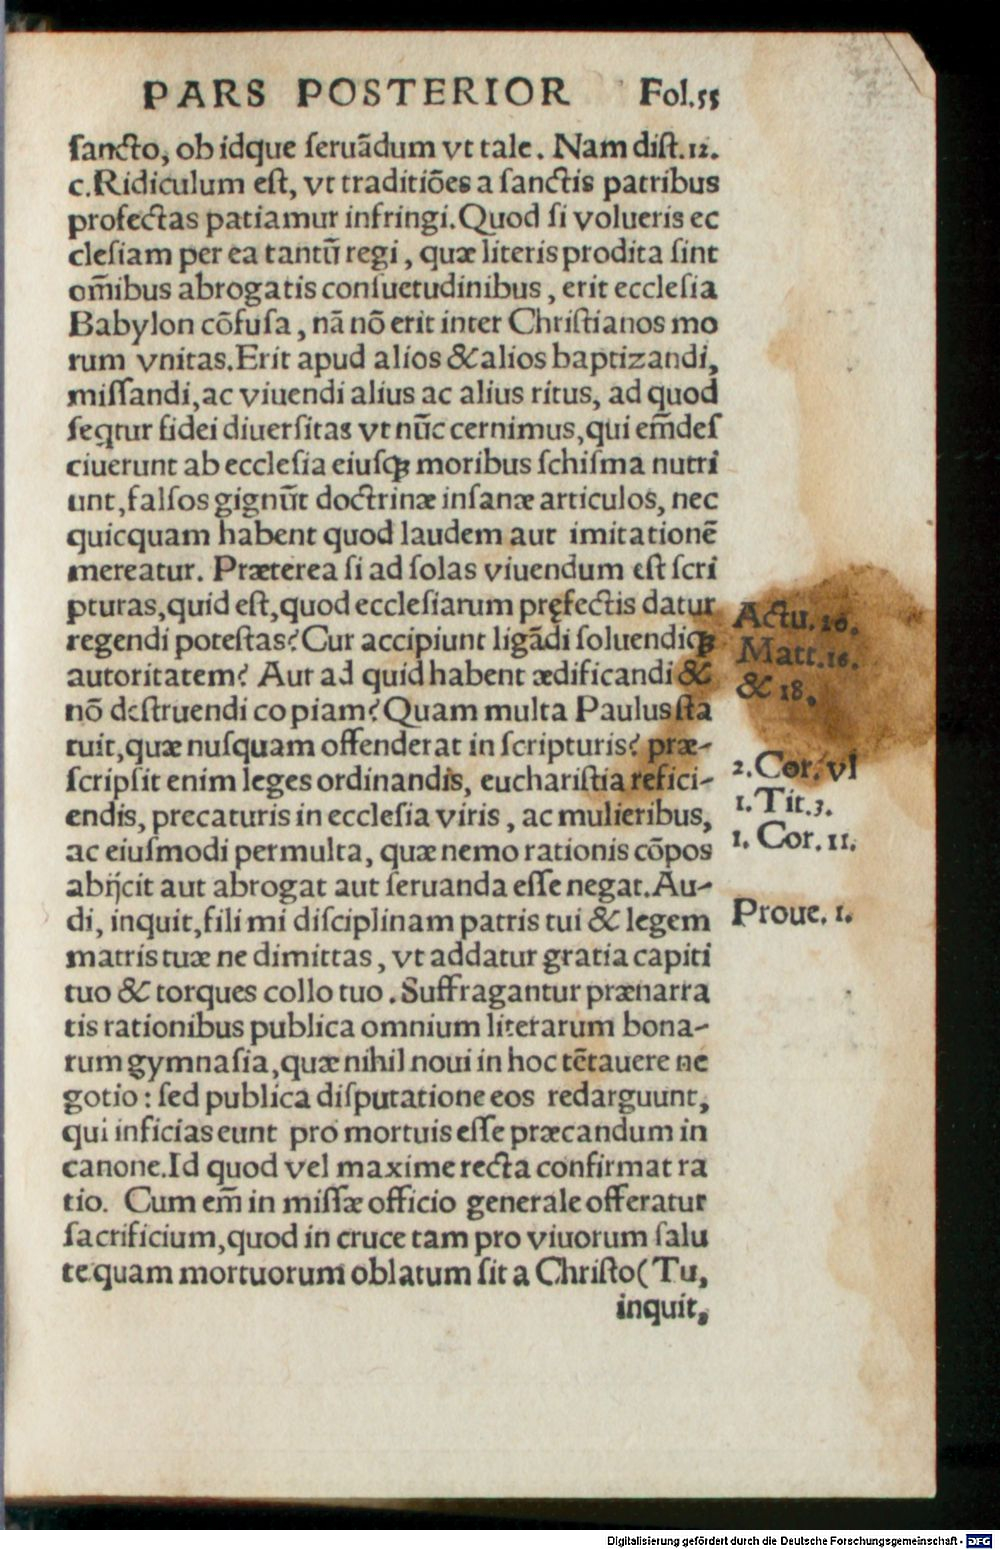 PARS POSTERIOR Fol.55
ſancto, ob idque ſeruãdum vt tale. Nam diſt.12.
c.Ridiculum eſt, vt traditiões a ſanctis patribus
profectas patiamur infringi.Quod ſi volueris ec
cleſiam per ea tantũ regi, quæ literis prodita ſint
om̃ibus abrogatis conſuetudinibus, erit eccleſia
Babylon cõfuſa, nã nõ erit inter Chriſtianos mo
rum vnitas.Erit apud alios & alios baptizandi,
miſſandi, ac viuendi alius ac alius ritus, ad quod
ſeqtur fidei diuerſitas vt nũc cernimus, qui em̃ deſ
ciuerunt ab eccleſia eiuſqꝫ moribus ſchiſma nutri
unt, falſos gignũt doctrinæ inſanæ articulos, nec
quicquam habent quod laudem aut imitationẽ
mereatur. Præterea ſi ad ſolas viuendum eſt ſcri
pturas, quid eſt, quod eccleſiarum pręfectis datur
regendi poteſtas? Cur accipiunt ligãdi ſoluendiqꝫ
autoritatem? Aut ad quid habent ædificandi &
nõ deſtruendi copiam? Quam multa Paulus ſta
tuit, quæ nuſquam offenderat in ſcripturis? præ-
ſcripſit enim leges ordinandis, euchariſtia refici-
endis, precaturis in eccleſia viris, ac mulieribus,
ac eiuſmodi permulta, quæ nemo rationis cõpos
abijcit aut abrogat aut ſeruanda eſſe negat.Au-
di, inquit, fili mi diſciplinam patris tui & legem
matris tuæ ne dimittas, vt addatur gratia capiti
tuo & torques collo tuo. Suffragantur prænarra
tis rationibus publica omnium literarum bona-
rum gymnaſia, quæ nihil noui in hoc tẽtauere ne
gotio: ſed publica diſputatione eos redarguunt,
qui inficias eunt pro mortuis eſſe præcandum in
canone.Id quod vel maxime recta confirmat ra
tio. Cum em̃ in miſſæ officio generale offeratur
ſacrificium, quod in cruce tam pro viuorum ſalu
te quam mortuorum oblatum ſit a Chriſto (Tu,
inquit,
Actu. 16.
Matt. 16.
& 18.
2. Cor. vl
1. Tit. 3.
1. Cor. 11.
Proue. 1.
Digitalisierung gefördert durch die Deutsche Forschungsgemeinschaft - DFG